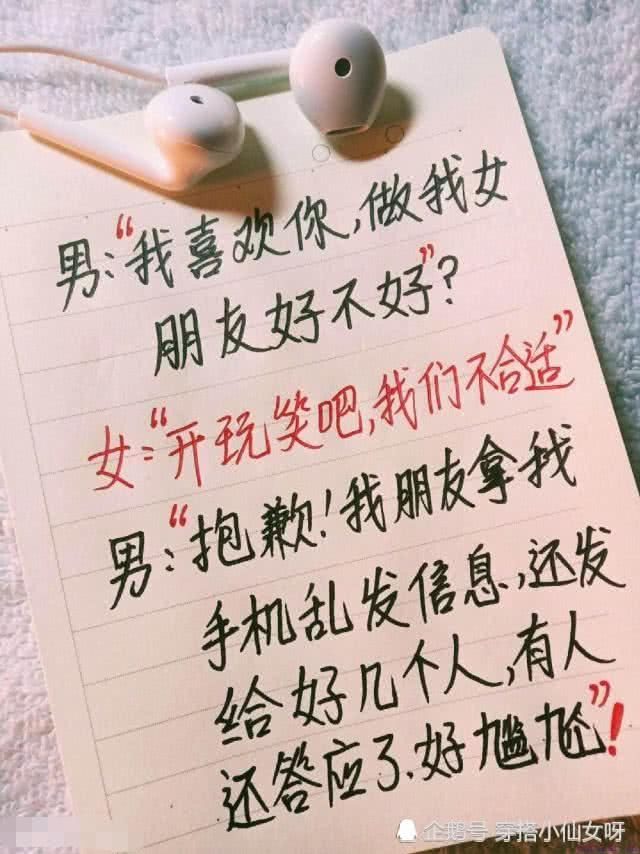 男:“我喜欢你,做我女
朋友好不好”?
女:“开玩笑吧,我们不合适”
男:“抱歉!我朋友拿我
手机乱发信息,还发
给好几个人,有人
还答应了、好尴尬”!
企鹅号 穿搭小仙女呀